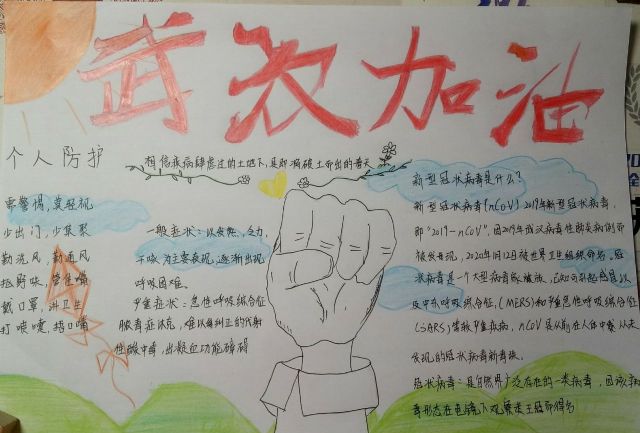 武汉加油
个人防护
相信疾病肆虐过的土地下,是即将破土而出的春天
要警惕,莫轻视
少出门,少集聚
勤洗风,勤通风
拒野味,管住嘴
戴口罩,讲卫生
打喷嚏,捂口嘴
一般症状:以发热、乏力、
干咳为主要表现,逐渐出现
呼吸困难。
严重症状:急性呼吸综合征
脓毒症休克,难以纠正的代谢
性酸中毒,出凝血功能障碍
新型冠状病毒是什么?
新型冠状病毒(nCoV)2019年新型冠状病毒,
即"2019-nCoV",因2019年武汉病毒性肺炎病例而
被发现,2020年1月12日被世界卫生组织命名。冠
状病毒是一个大型病毒家族,已知可引起感冒以
及中东呼吸综合征(MERS)和严重急性呼吸综合征
(SARS)等较严重疾病,nCoV是以前在人体中从未
发现的冠状病毒新毒株。
冠状病毒:是自然界广泛存在的一类病毒,因该病
毒形态在镜下观察类王冠而得名